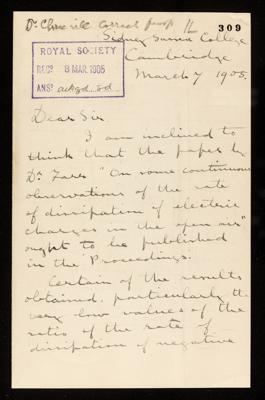 Dr Chree will correct proof
309
Sidney Sussex College
Cambridge
March 7 1905.
ROYAL SOCIETY
RECD. 8 MAR. 1905
ANSd. ackgd. sd
Dear Sir
I am inclined to
think that the paper by
Dr. Zares "On some continuous
observations of the rate
of dissipation of electric
charges in the open air"
ought to be published
in the Proceedings.
Certain of the results
obtained, particularly the
very low values of the
ratio of the rate of
dissipation of negative